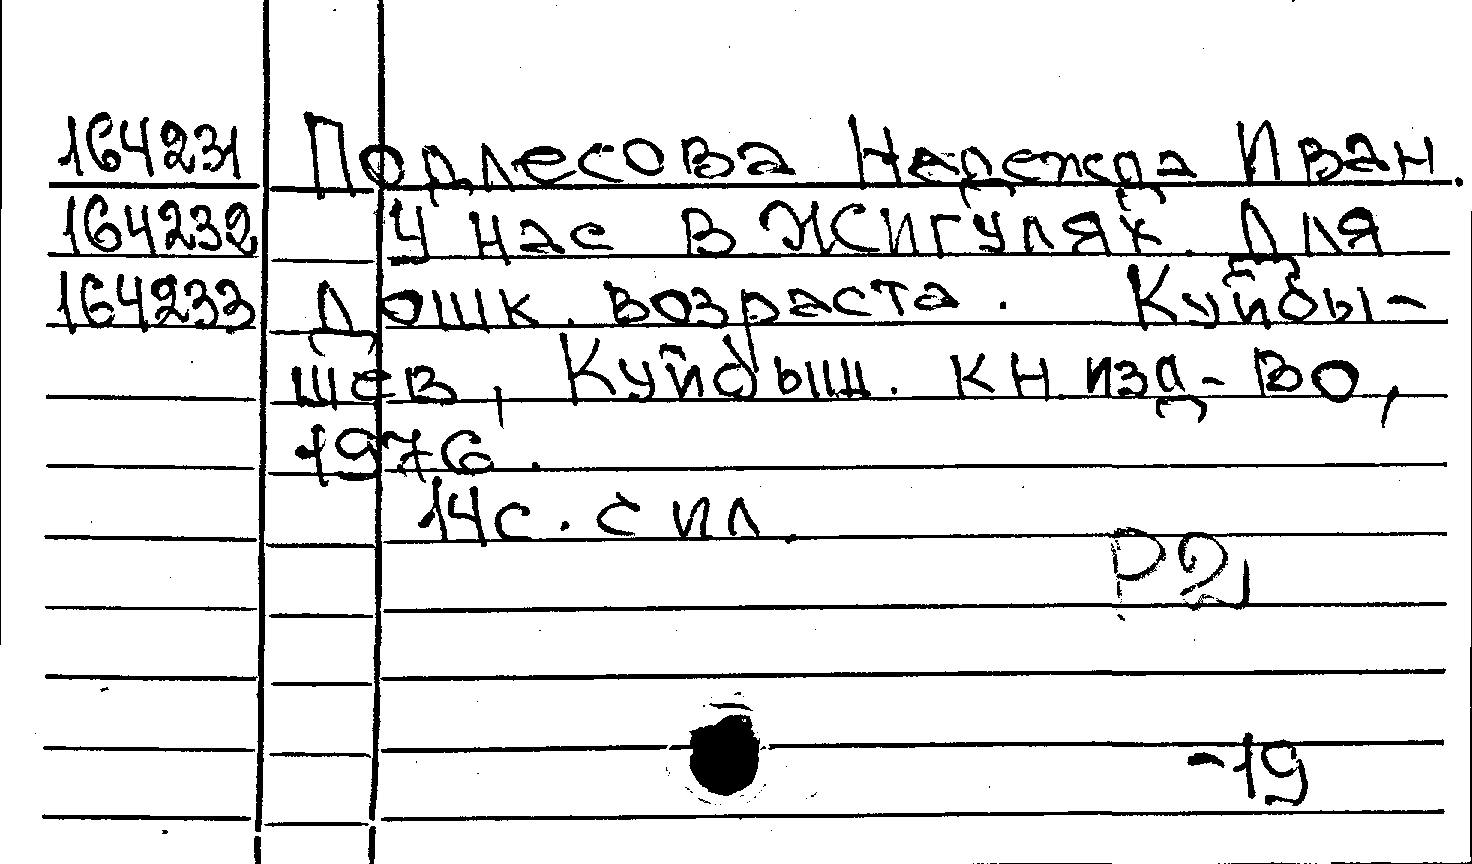 164231 Подлесова Надежда Иван.
164232 У нас в Жигулях. Для
164233 дошк. возраста. Куйбы-
шев, Куйбыш. кн. изд-во,
1976.
14 с. с ил.
Р2
-19